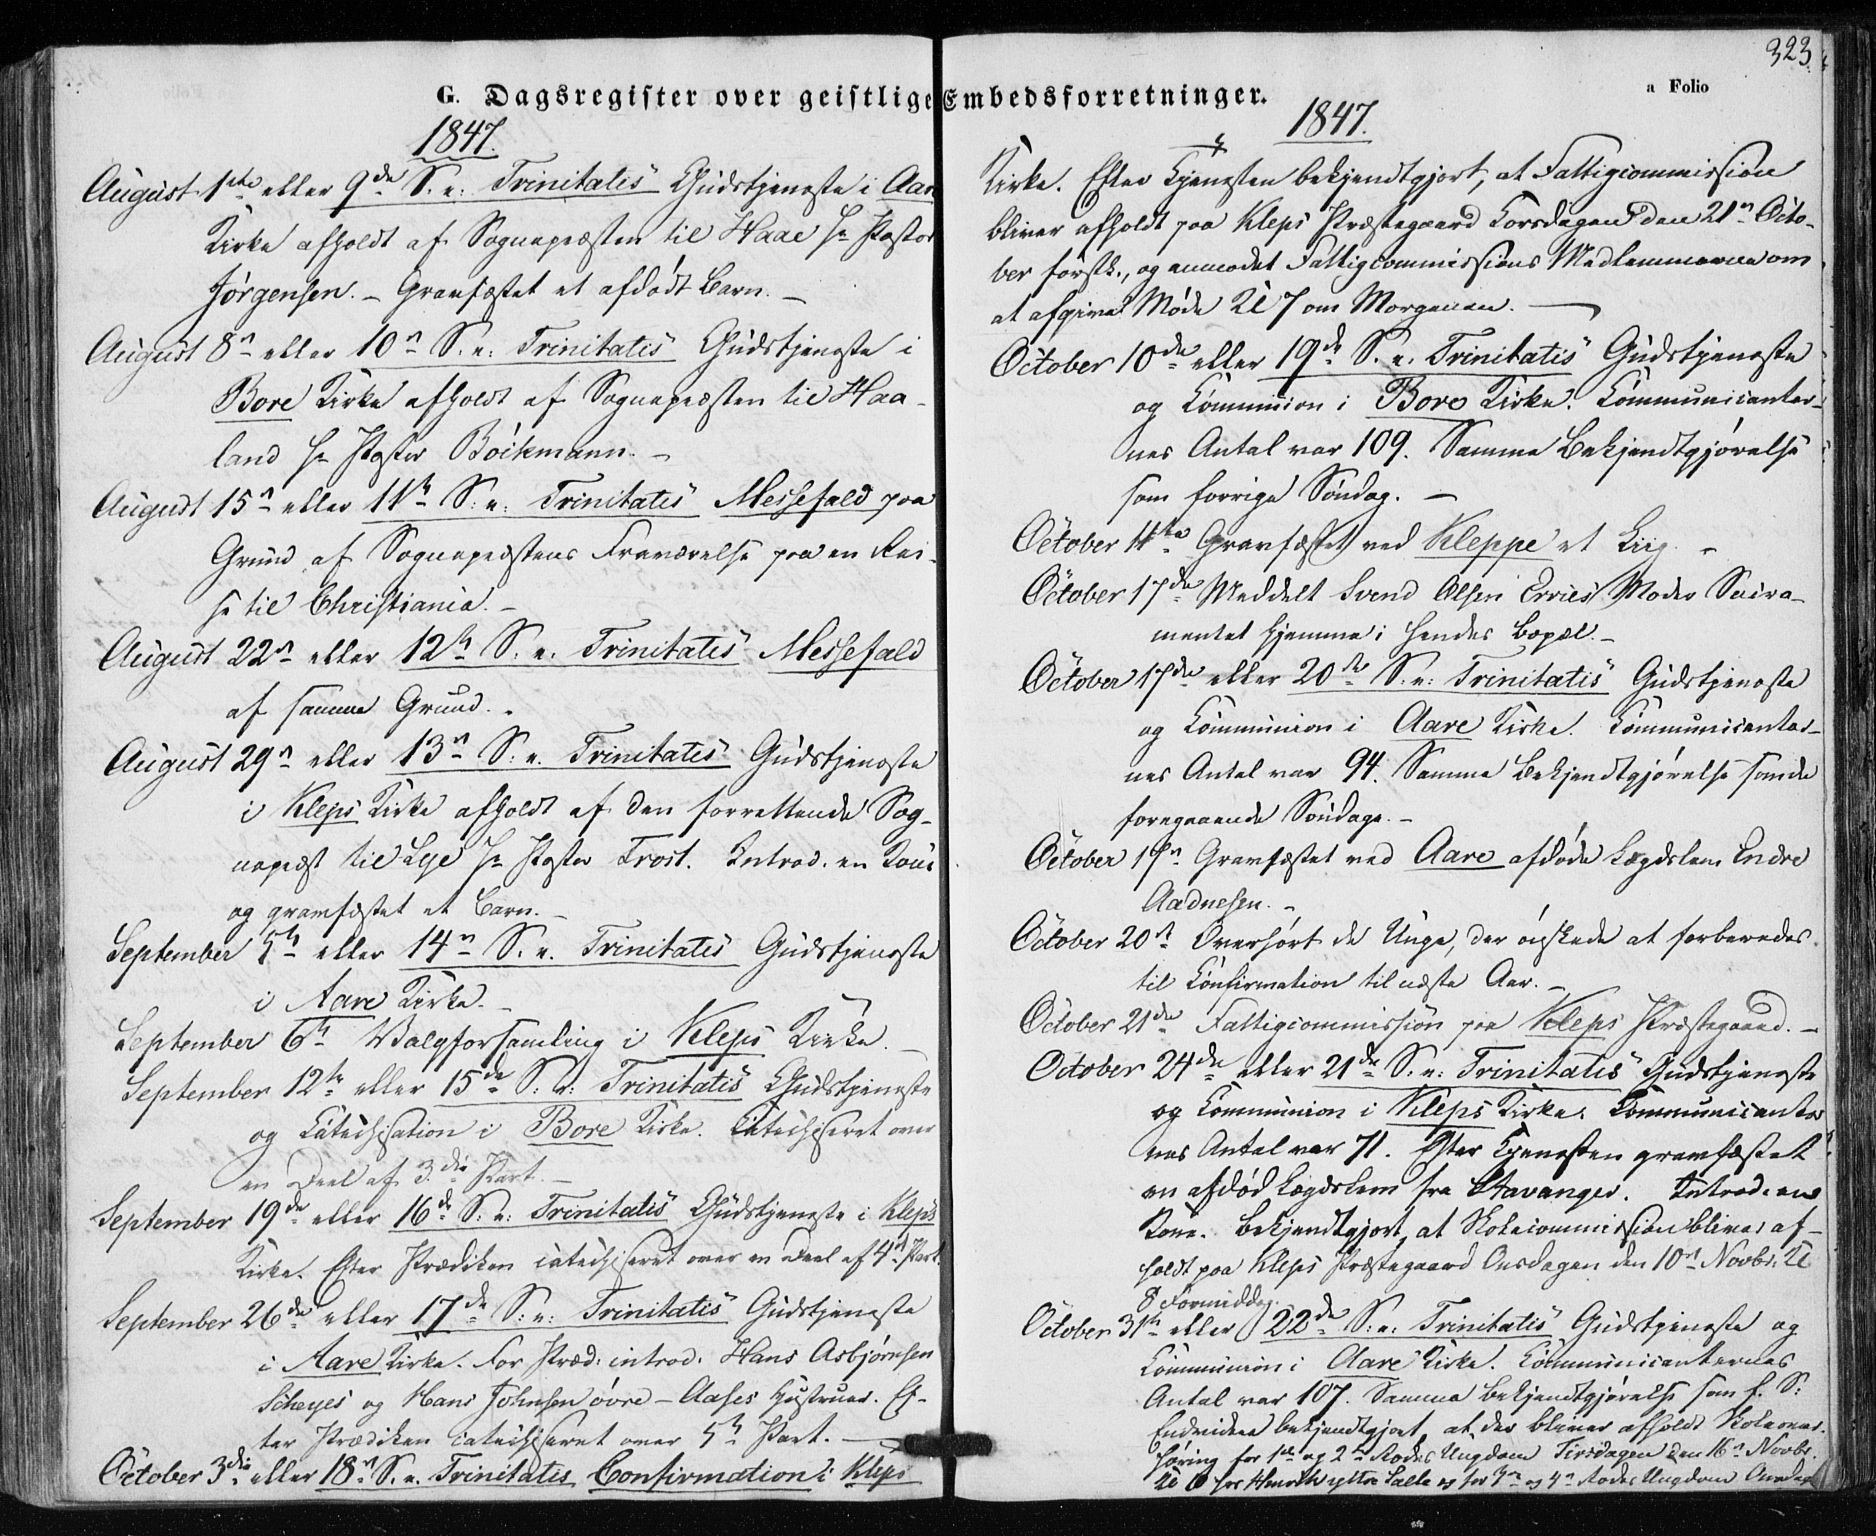 G. Dagsregister over geistlige Embedsforretninger.
1847.
August 1ste eller 9de S. e: Trinitatis Gudstjeneste i Aare
Kirke afholdt af Sognepræsten til Haae Hr Pastor
Jørgensen. – Gravfæstet et afdødt Barn. –
August 8n eller 10n S. e: Trinitatis Gudstjeneste i
Bore Kirke afholdt af Sognepræsten til Haa-
land Hr Pastor Böckmann. –
August 15n eller 11te S: e: Trinitatis Messefald paa
Grund af Sognepræstens Fraværelse paa en Rei-
se til Christiania. –
August 22n eller 12te S: e. Trinitatis Messefald
af samme Grund. –
August 29n eller 13n S: e. Trinitatis Gudstjeneste
i Kleps Kirke afholdt af den forrettende Sog-
nepræst til Lye Hr Pastor Trost. Introd. en Kone
og gravfæstet et Barn. –
September 5te eller 14n S. e. Trinitatis Gudstjeneste
i Aare Kirke. –
September 6te Valgforsamling i Kleps Kirke. –
September 12te eller 15de S: e: Trinitatis Gudstjeneste
og Catechisation i Bore Kirke. Catechiseret over
en Deel af 3die Part. –
September 19de eller 16de S: e: Trinitatis Gudstjeneste i Kleps
Kirke. Efter Prædiken catechiseret over en Deel af 4n Part.
September 26de eller 17de S: e: Trinitatis Gudstjeneste
i Aare Kirke. For Præd: introd. Hans Asbjørnsen
Scheyes og Hans Johnsen øvre-Aases Hustruer. Ef-
ter Prædiken catechiseret over 5te Part. –
October 3die eller 18n S. e. Trinitatis Confirmation i Kleps
323
a Folio
1847.
Kirke. Efter Tjenesten bekjendtgjort, at Fattigcommission
bliver afholdt paa Kleps Præstegaard Torsdagen den 21n Octo-
ber førstk., og anmodet Fattigcommissions Medlemmerne om
at afgive Møde Kl 7 om Morgenen. –
October 10de eller 19de S. e. Trinitatis Gudstjeneste
og Communion i Bore Kirke. Communicanter-
nes Antal var 109. Samme Bekjendtgjørelse
som forrige Søndag. –
October 11te Gravfæstet ved Kleppe et Liig. –
October 17de Meddelt Svend Olsen Ervies Moder Sacra-
mentet hjemme i hendes Bopæl. –
October 17de eller 20de S: e: Trinitatis Gudstjeneste
og Communion i Aare Kirke. Communicanter-
nes Antal var 94. Samme Bekjendtgjørelse som de
foregaaende Søndage. –
October 19n Gravfæstet ved Aare afdøde Lægdslem Endre
Aadnesen. –
October 20n Overhørt de Unge, der ønskede at forberedes
til Confirmation til næste Aar. –
October 21de Fattigcommission paa Kleps Præstegaard. –
October 24de eller 21de S. e: Trinitatis Gudstjeneste
og Communion i Kleps Kirke. Communicanter
nes Antal var 71. Efter Tjenesten gravfæstet
en afdød Lægdslem fra Stavanger. Introd. en
Kone. Bekjendtgjort, at Skolecommission bliver af-
holdt paa Kleps Præstegaard Onsdagen den 10n Novbr. Kl
8 Formiddag.
October 31te eller 22de S: e: Trinitatis Gudstjeneste og
Communion i Aare Kirke. Communicanternes
Antal var 107. Samme Bekjendtgjørelse som f. S:
Endvidere bekjendtgjort, at der bliver afholdt Skoleover-
høring for 1ste og 2n Rodes Ungdom Tirsdagen den 16n Novbr.
Kl 8 hos Henrik yttre Salte og for 3n og 4n Rodes Ungdom Onsdag